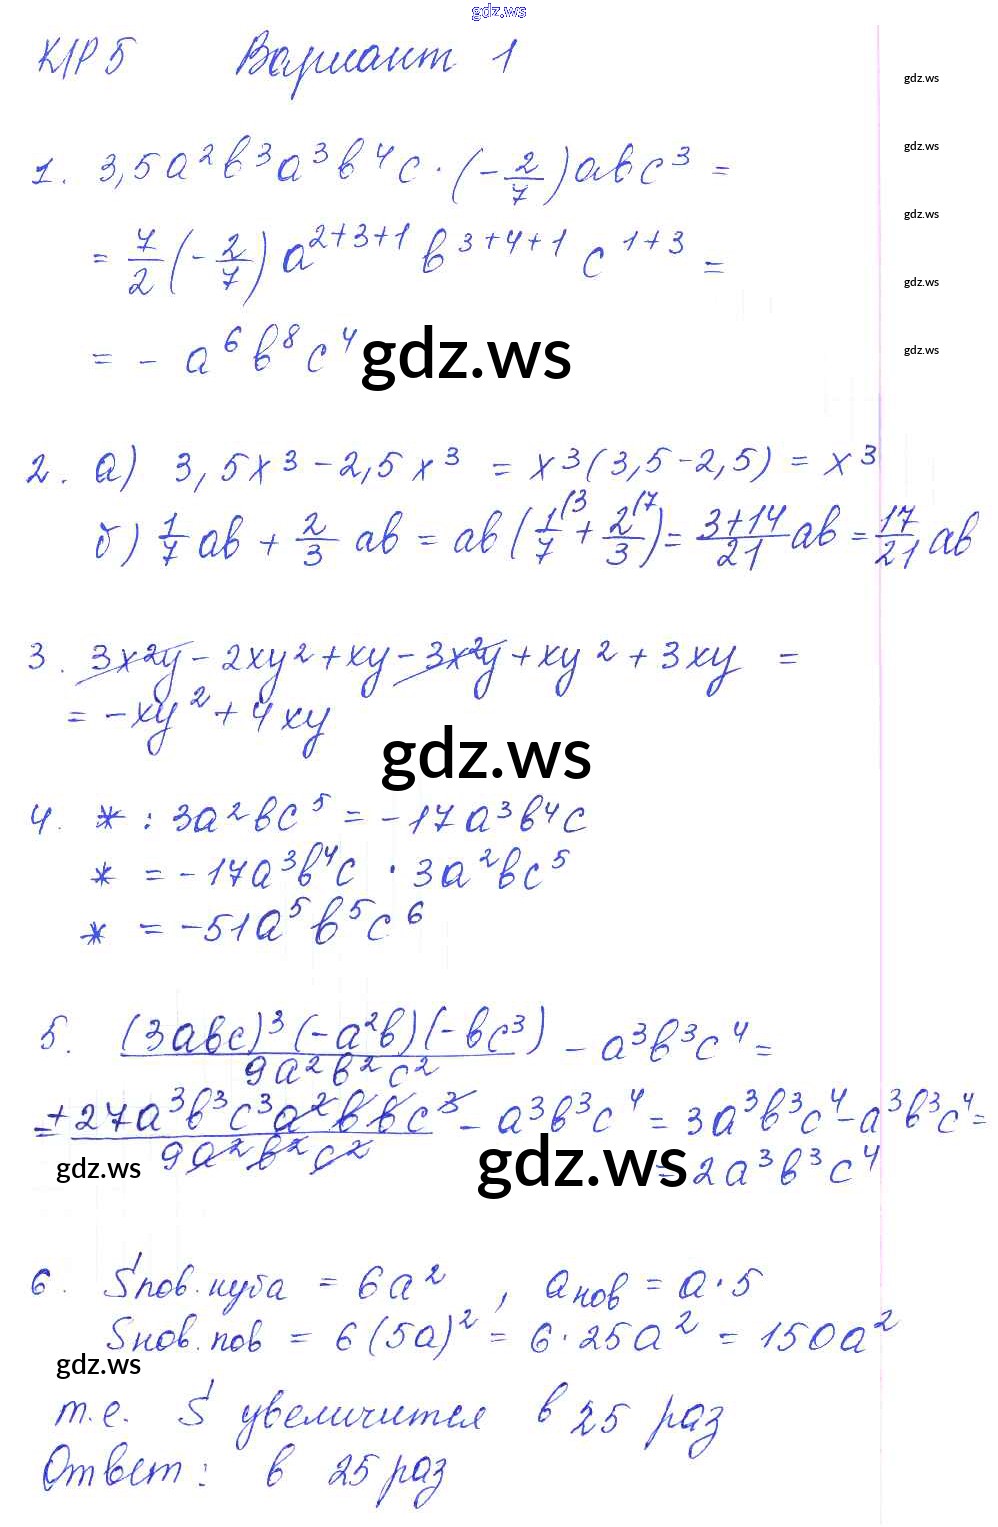 gdz.ws
К/Р 5 Вариант 1
gdz.ws
gdz.ws
1. 3,5a²b³a³b⁴c · (-2/7)abc³ =
gdz.ws
= 7/2 (-2/7) a²⁺³⁺¹ b³⁺⁴⁺¹ c¹⁺³ =
gdz.ws
= - a⁶b⁸c⁴
gdz.ws
gdz.ws
2. а) 3,5x³ - 2,5x³ = x³(3,5 - 2,5) = x³
б) 1/7 ab + 2/3 ab = ab (1/7⁽³ + 2/3⁽⁷) = (3+14)/21 ab = 17/21 ab
3. 3x²y - 2xy² + xy - 3x²y + xy² + 3xy =
= -xy² + 4xy
gdz.ws
4. * : 3a²bc⁵ = -17a³b⁴c
* = -17a³b⁴c · 3a²bc⁵
* = -51a⁵b⁵c⁶
5. (3abc)³(-a²b)(-bc³) / 9a²b²c² - a³b³c⁴ =
= +27a³b³c³a²bbc³ / 9a²b²c² - a³b³c⁴ = 3a³b³c⁴ - a³b³c⁴ =
gdz.ws
gdz.ws
= 2a³b³c⁴
6. Sпов.куба = 6a² , aнов = a · 5
Sнов.пов = 6(5a)² = 6 · 25a² = 150a²
gdz.ws
т.е. S увеличится в 25 раз
Ответ: в 25 раз